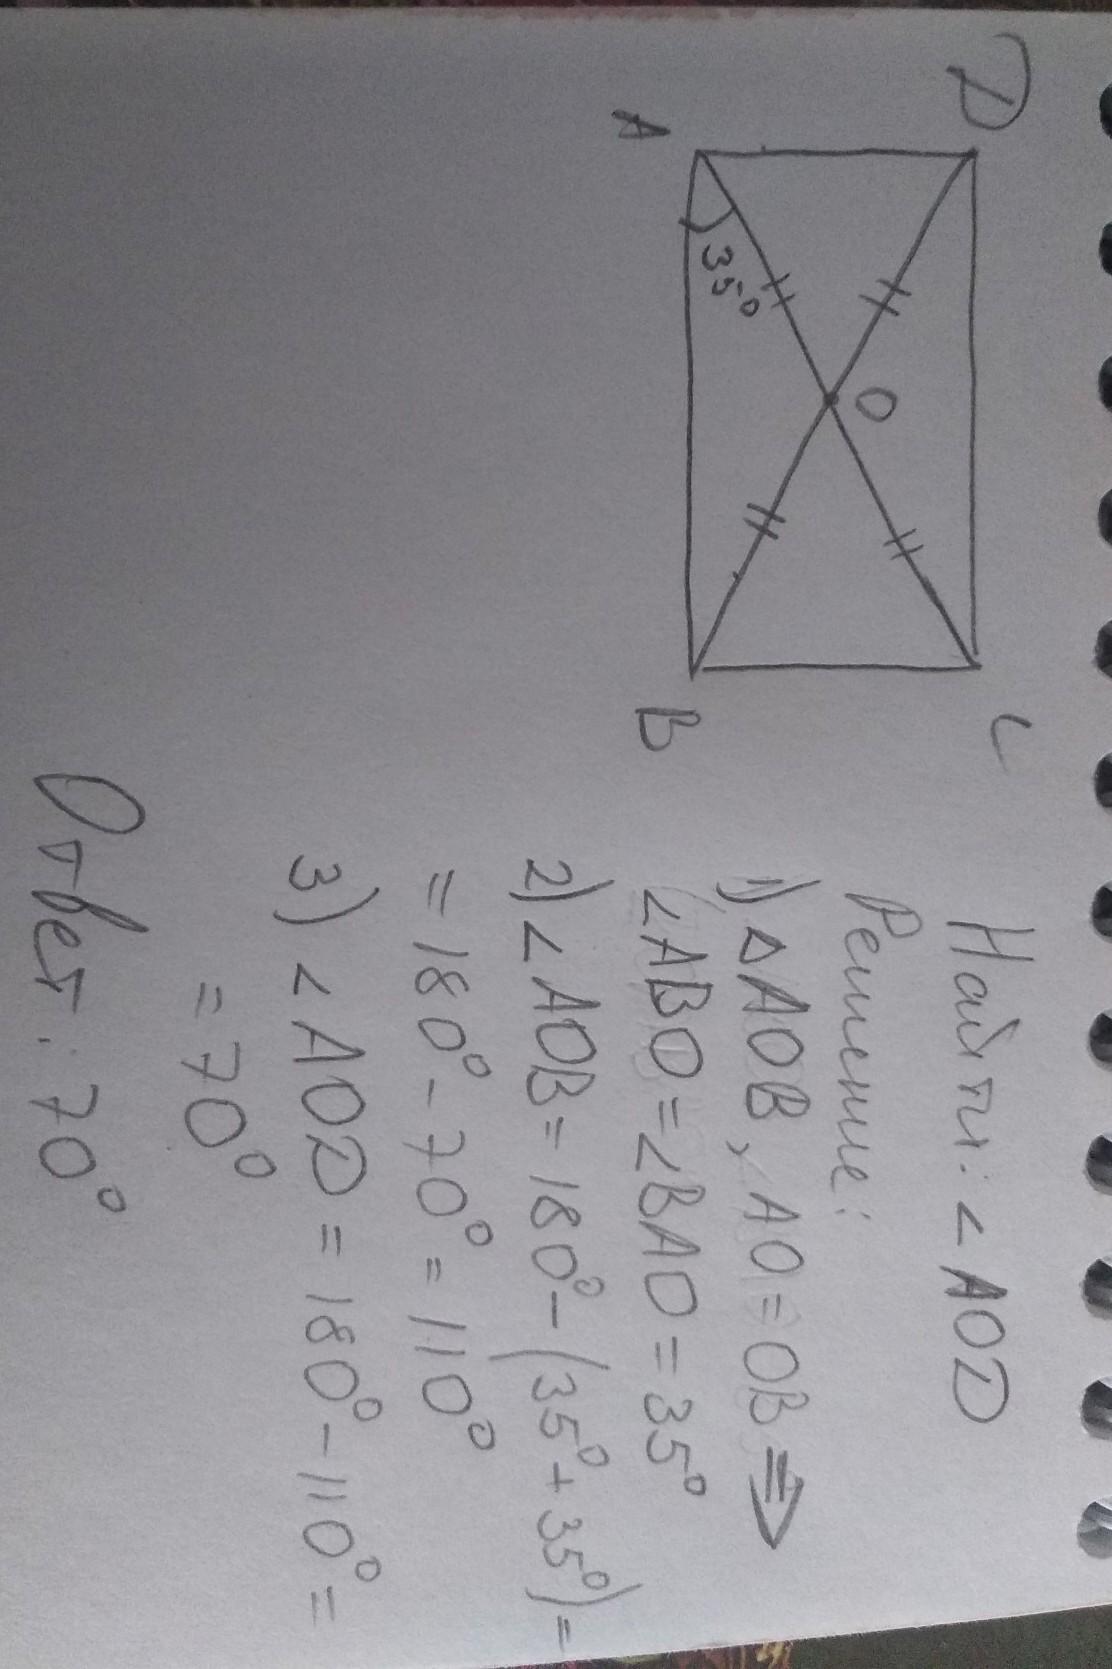 D
C
O
35°
A
B
Найти: ∠AOD
Решение:
1) △AOB, AO=OB ⇒
∠ABO=∠BAO=35°
2) ∠AOB=180°-(35°+35°)=
=180°-70°=110°
3) ∠AOD=180°-110°=
=70°
Ответ: 70°